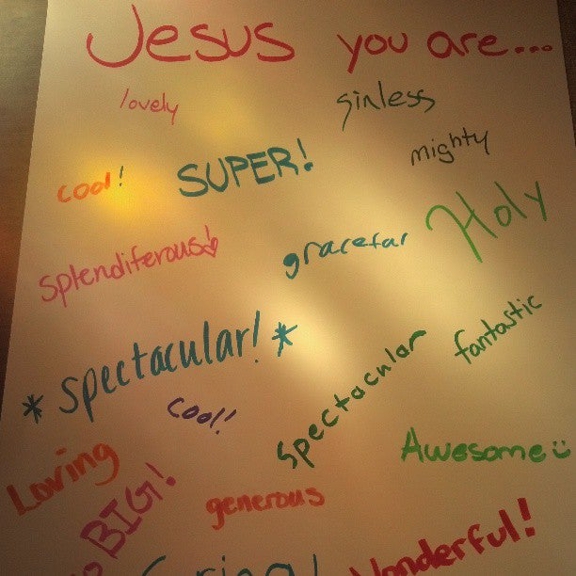 Jesus you are...
lovely
sinless
mighty
cool!
SUPER!
Holy
splendiferous!
gracefar
*spectacular!*
fantastic
spectacular
cool!!
Awesome
Loving
BIG!
generous
Wonderful!